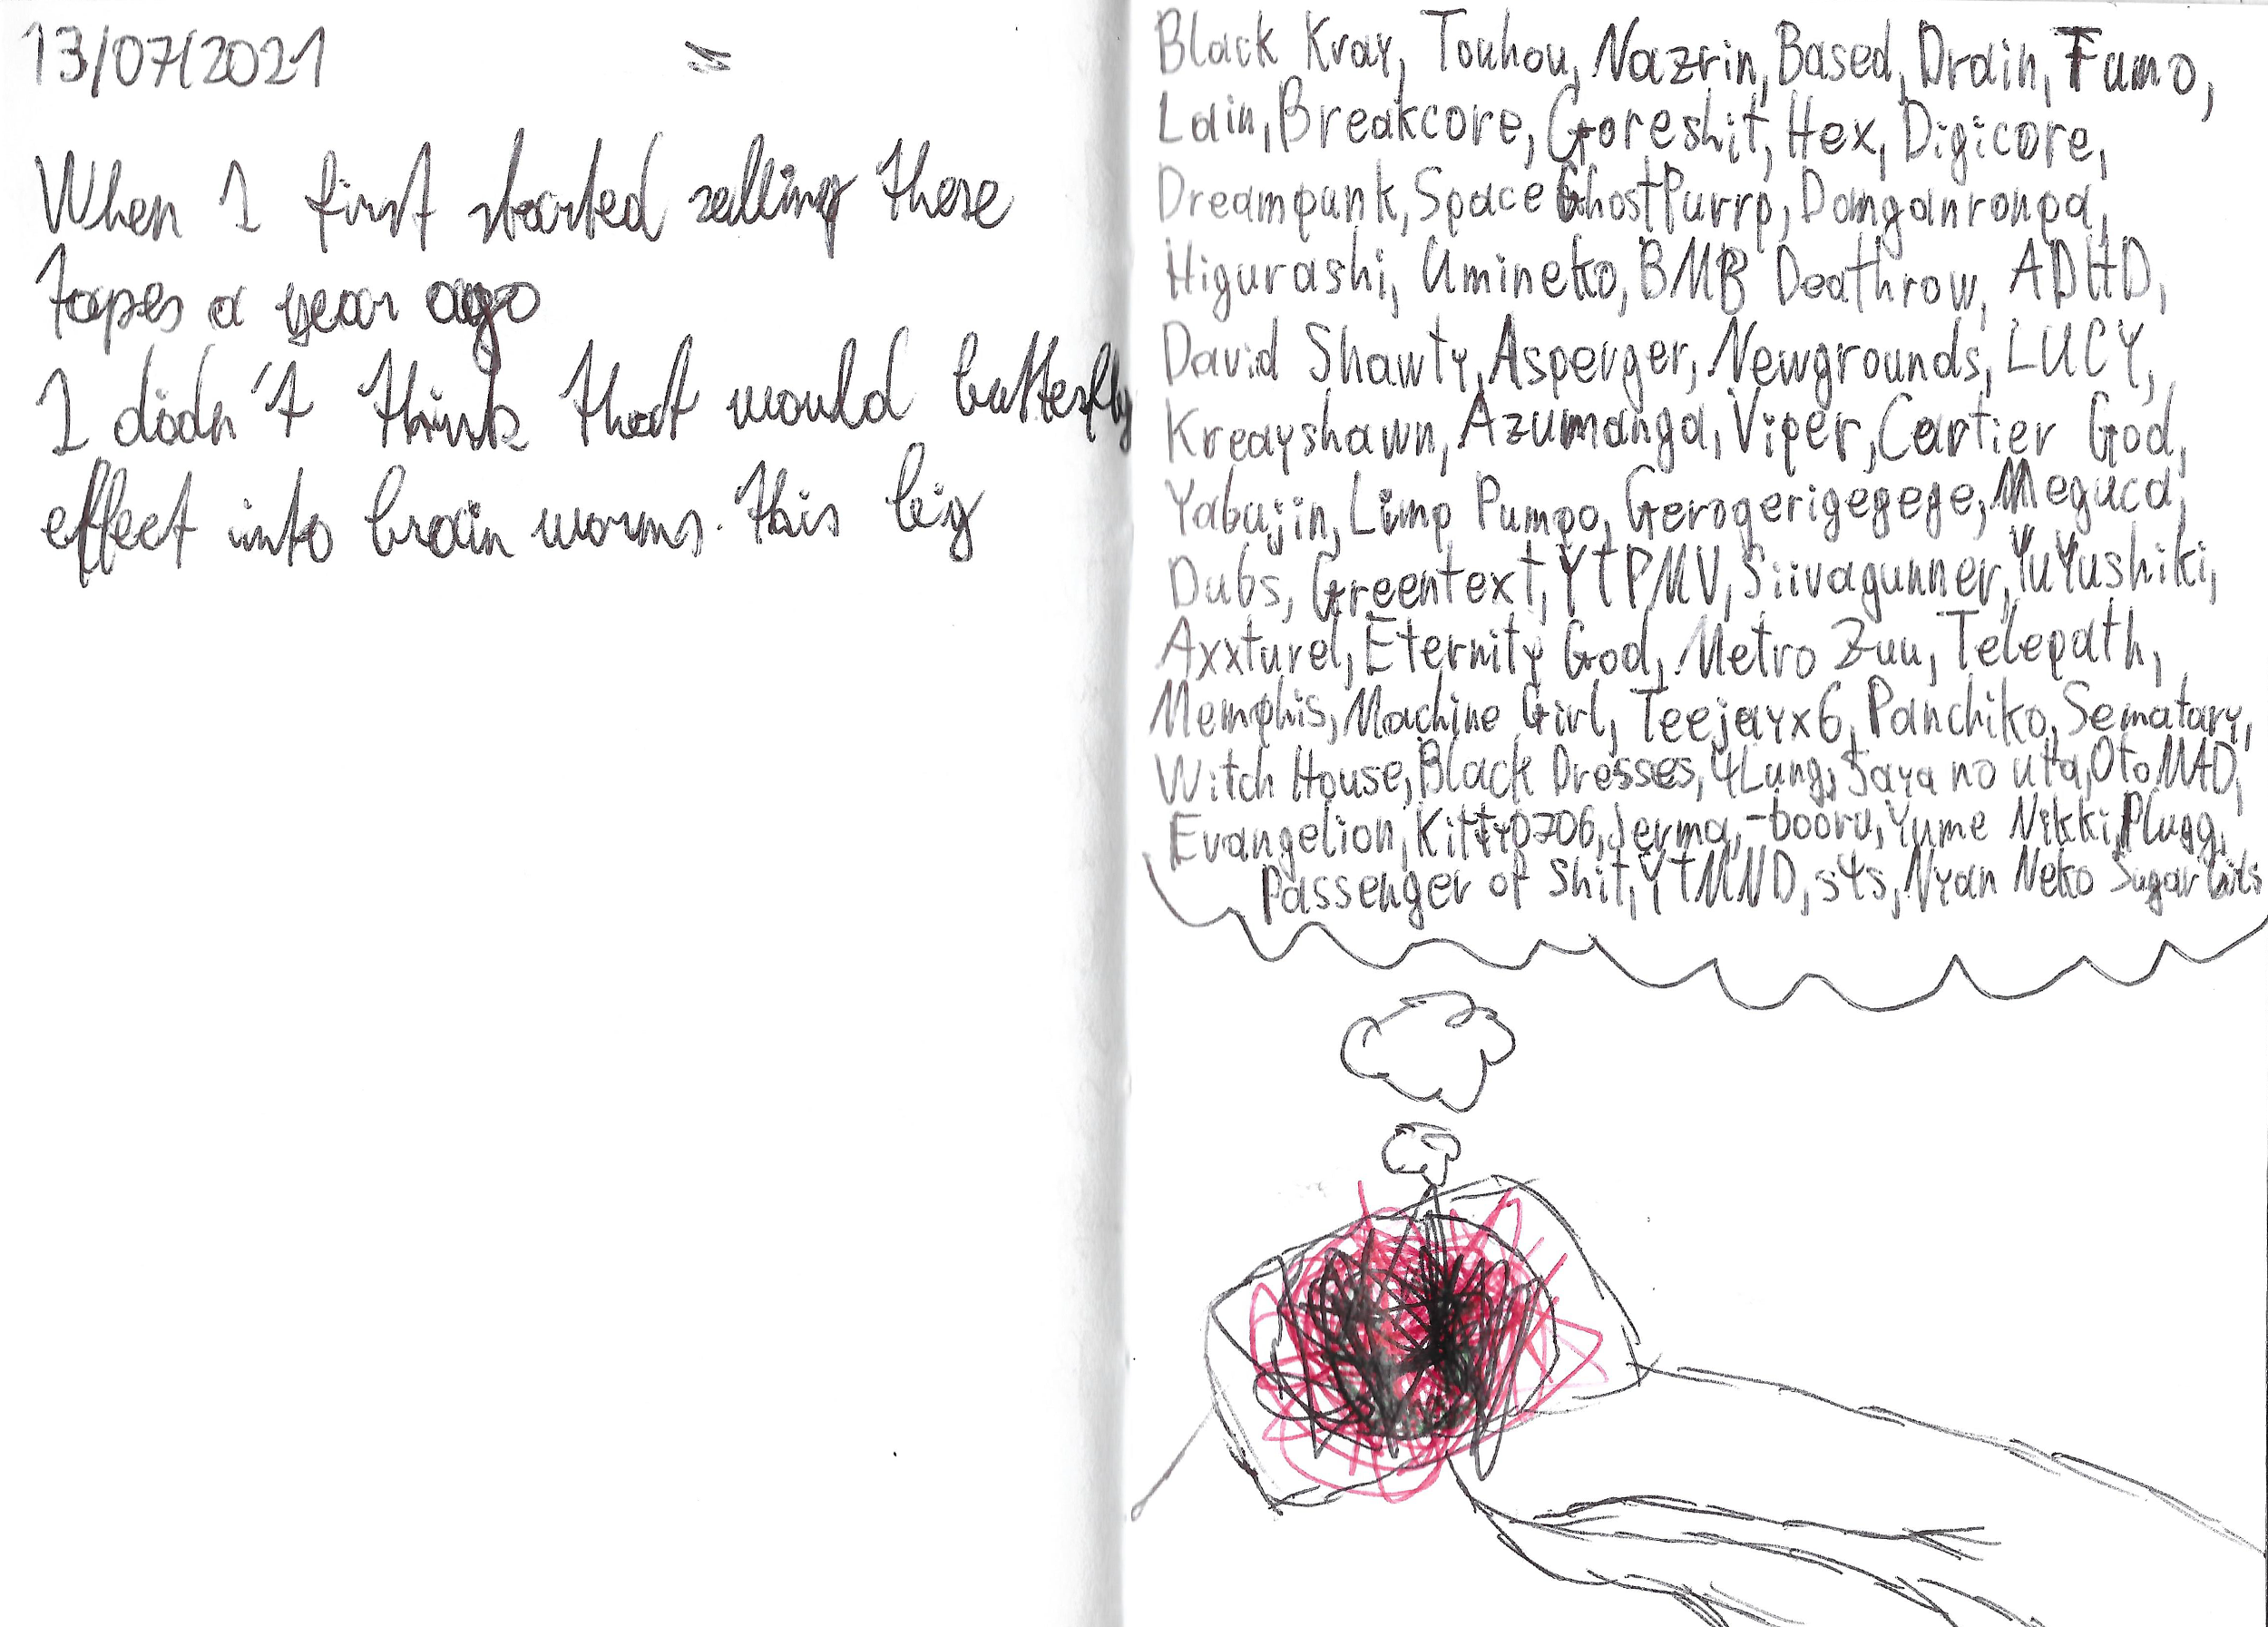 13/07/2021
When I first started selling these
tapes a year ago
I didn't think that would butterfly
effect into brain worms this big
Black Kray, Touhou, Nazrin, Based, Drain, Fumo,
Lain, Breakcore, Goreshit, Hex, Digicore,
Dreampunk, SpaceGhostPurrp, Danganronpa,
Higurashi, Umineko, BMB Deathrow, ADHD,
David Shawty, Asperger, Newgrounds, LUCY,
Kreayshawn, Azumanga, Viper, Cartier God,
Yabujin, Limp Pumpo, Gerogerigegege, Meguca,
Dubs, Greentext, YTPMV, Siivagunner, YuYushiki,
Axxturel, Eternity God, Metro Zuu, Telepath,
Memphis, Machine Girl, Teejayx6, Panchiko, Sematary,
Witch House, Black Dresses, 4Lung, Saya no uta, OtoMAD,
Evangelion, Kitty0706, Jerma, -booru, Yume Nikki, Plugg,
Passenger of Shit, YTMND, s4s, Nyan Neko Sugar Girls